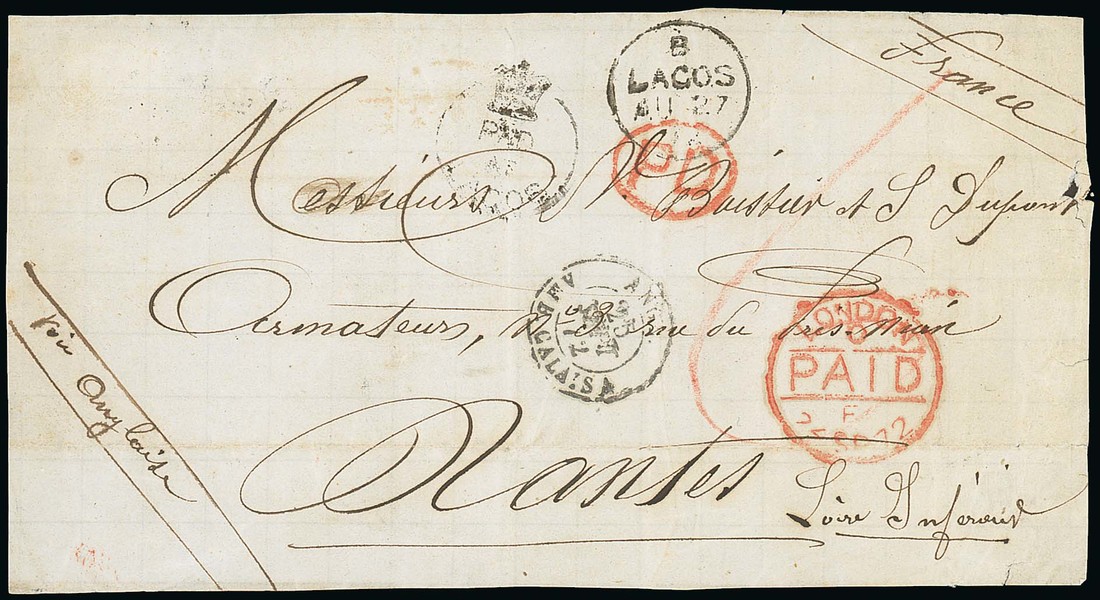 France
B
LAGOS
AU 27
PAID
AT
LAGOS
PD
Messieurs Vl Boissier et S Dupont
Armateurs, n° 3 rue du
Nantes
Loire Inférieure
Voie Anglaise
ANGL.
AMB. CALAIS A
LONDON
PAID
24 SP 72